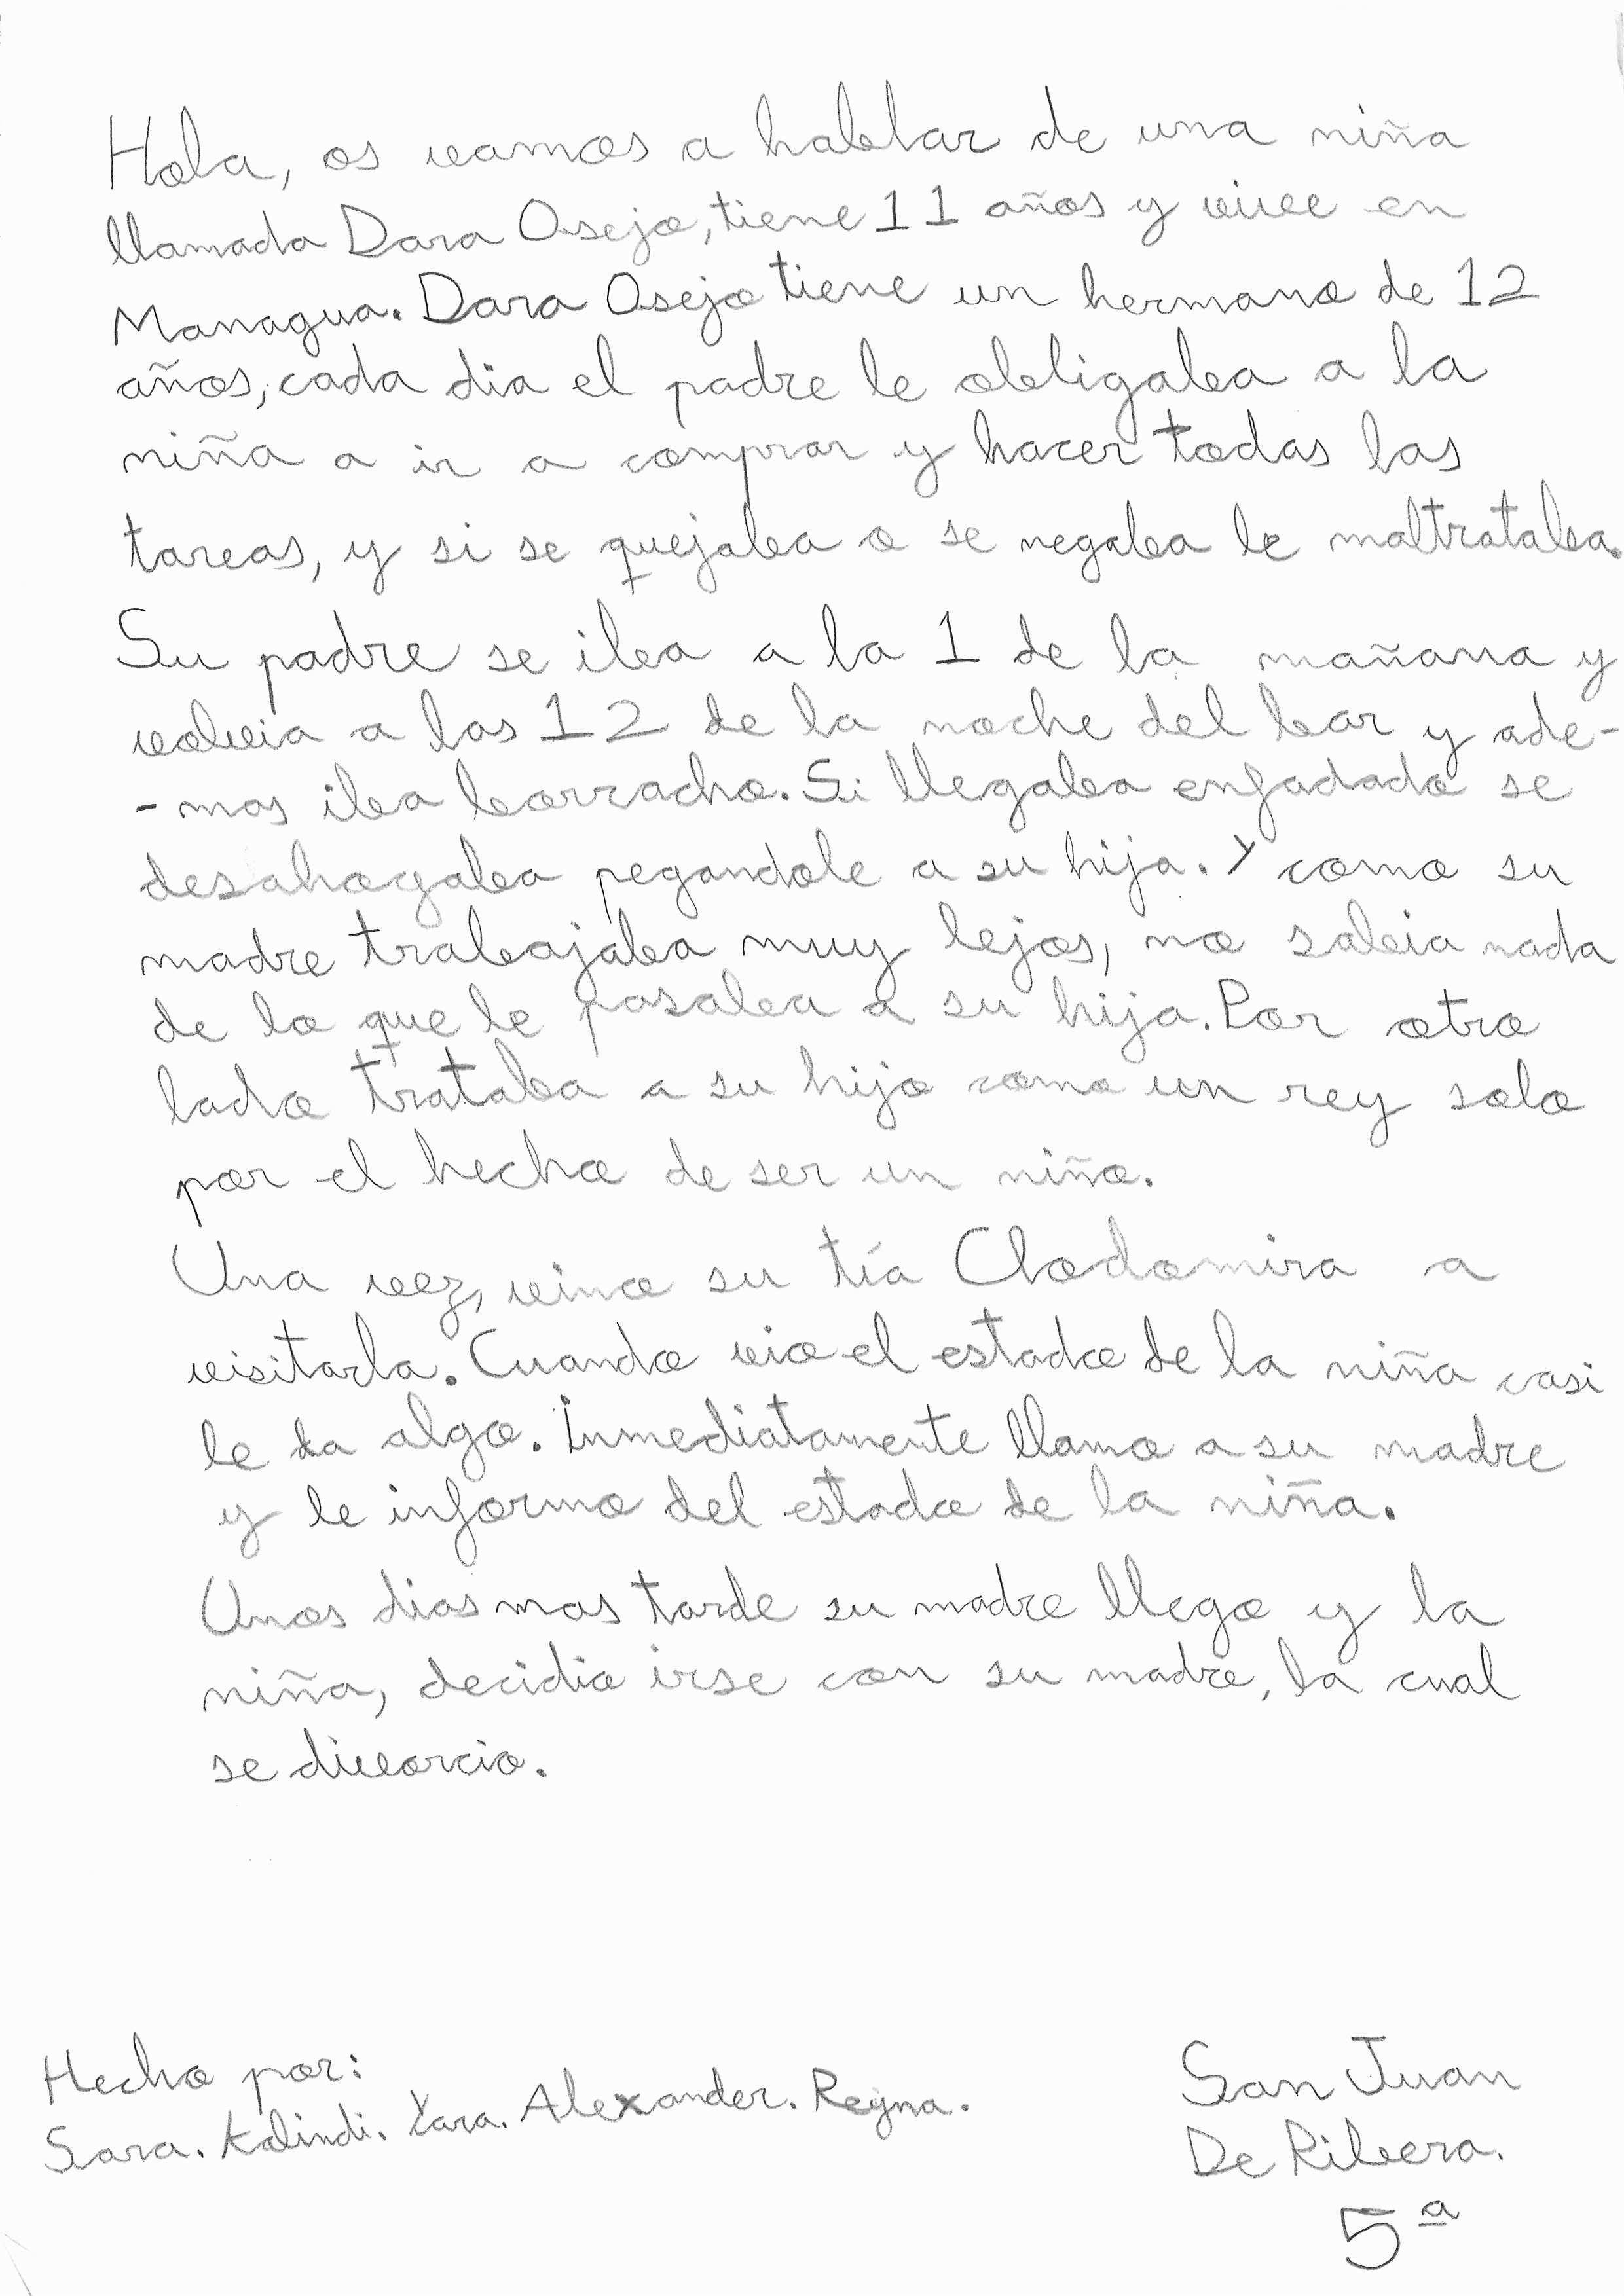 Hola, os vamos a hablar de una niña
llamada Dara Osejo, tiene 11 años y vive en
Managua. Dara Osejo tiene un hermano de 12
años, cada dia el padre le obligaba a la
niña a ir a comprar y hacer todas las
tareas, y si se quejaba o se negaba le maltrataba.
Su padre se iba a la 1 de la mañana y
volvia a las 12 de la noche del bar y ade-
-mas iba borracho. Si llegaba enfadado se
desahogaba pegandole a su hija. Y como su
madre trabajaba muy lejos, no sabia nada
de lo que le pasaba a su hija. Por otro
lado trataba a su hijo como un rey solo
por el hecho de ser un niño.
Una vez, vino su tía Clodomira a
visitarla. Cuando vio el estado de la niña casi
le da algo. Inmediatamente llamo a su madre
y le informo del estado de la niña.
Unos dias mas tarde su madre llego y la
niña, decidio irse con su madre, la cual
se divorcio.
Hecho por:
Sara. Kalindi. Yara. Alexander. Reyna.
San Juan
De Ribera.
5ª